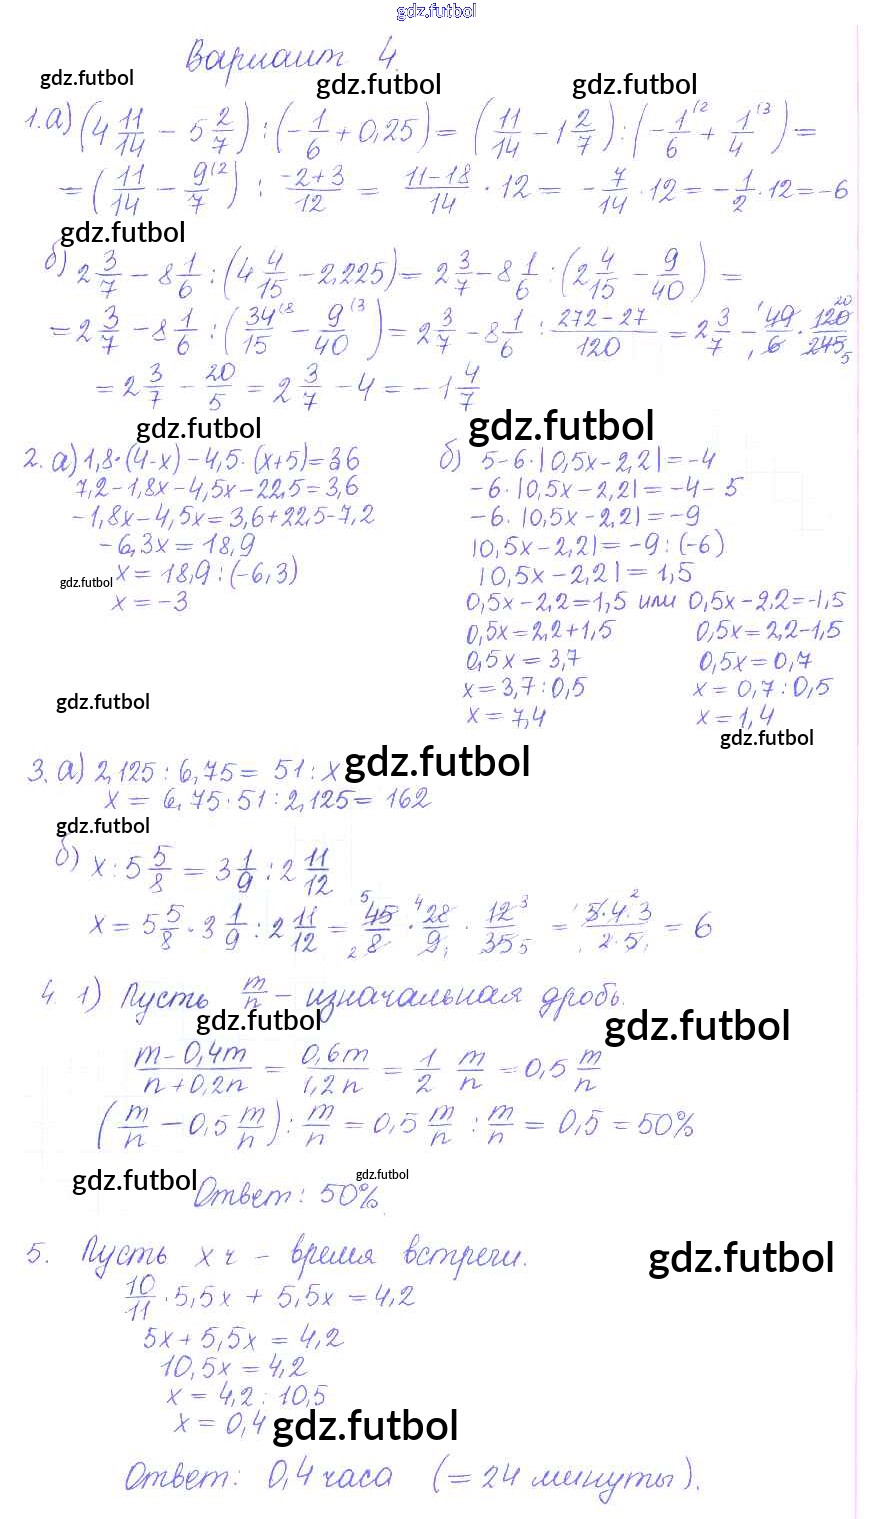 gdz.futbol
Вариант 4.
gdz.futbol gdz.futbol gdz.futbol
1. а) (4 11/14 − 5 2/7) : (−1/6 + 0,25) = (11/14 − 1 2/7) : (−1/6 (2 + 1/4 (3) =
= (11/14 − 9/7 (2) : (−2+3)/12 = (11−18)/14 · 12 = −7/14 · 12 = −1/2 · 12 = −6
gdz.futbol
б) 2 3/7 − 8 1/6 : (4 4/15 − 2,225) = 2 3/7 − 8 1/6 : (2 4/15 − 9/40) =
= 2 3/7 − 8 1/6 : (34/15 (8 − 9/40 (3) = 2 3/7 − 8 1/6 : (272−27)/120 = 2 3/7 − 49/6 · 120/245
= 2 3/7 − 20/5 = 2 3/7 − 4 = −1 4/7
gdz.futbol gdz.futbol
2. а) 1,8·(4−x) − 4,5·(x+5) = 36
7,2−1,8x−4,5x−22,5=3,6
−1,8x−4,5x=3,6+22,5−7,2
−6,3x = 18,9
gdz.futbol x = 18,9 : (−6,3)
x = −3
gdz.futbol
б) 5−6·|0,5x−2,2|=−4
−6·|0,5x−2,2|=−4−5
−6·|0,5x−2,2|=−9
|0,5x−2,2|=−9:(−6)
|0,5x−2,2|=1,5
0,5x−2,2=1,5 или 0,5x−2,2=−1,5
0,5x=2,2+1,5 0,5x=2,2−1,5
0,5x=3,7 0,5x=0,7
x=3,7:0,5 x=0,7:0,5
x=7,4 x=1,4
gdz.futbol
3. а) 2,125 : 6,75 = 51 : x gdz.futbol
x = 6,75·51:2,125 = 162
gdz.futbol
б) x : 5 5/8 = 3 1/9 : 2 11/12
x = 5 5/8 · 3 1/9 : 2 11/12 = 45/8 · 28/9 · 12/35 = (5·4·3)/(2·5) = 6
4. 1) Пусть m/n − изначальная дробь.
gdz.futbol gdz.futbol
(m−0,4m)/(n+0,2n) = 0,6m/1,2n = 1/2 m/n = 0,5 m/n
(m/n − 0,5 m/n) : m/n = 0,5 m/n : m/n = 0,5 = 50%
gdz.futbol gdz.futbol
Ответ: 50%.
5. Пусть x ч − время встречи. gdz.futbol
10/11 · 5,5x + 5,5x = 4,2
5x + 5,5x = 4,2
10,5x = 4,2
x = 4,2 : 10,5
x = 0,4 gdz.futbol
Ответ: 0,4 часа (= 24 минуты).